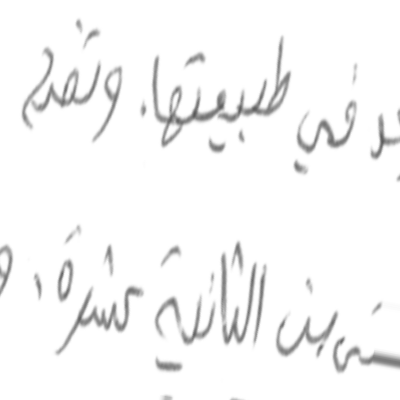 في طبيعتها. وتقدم
بين الثانية عشرة،